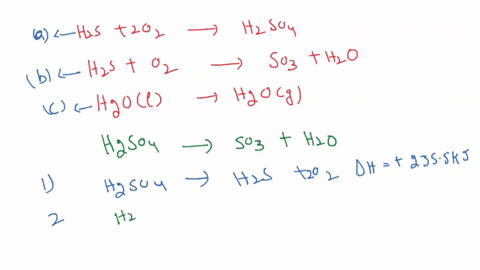 (a) ← H2S + 2O2 → H2SO4
(b) ← H2S + O2 → SO3 + H2O
(c) ← H2O(l) → H2O(g)
H2SO4 → SO3 + H2O
1) H2SO4 → H2S + 2O2 DH = + 235.5KJ
2 H2